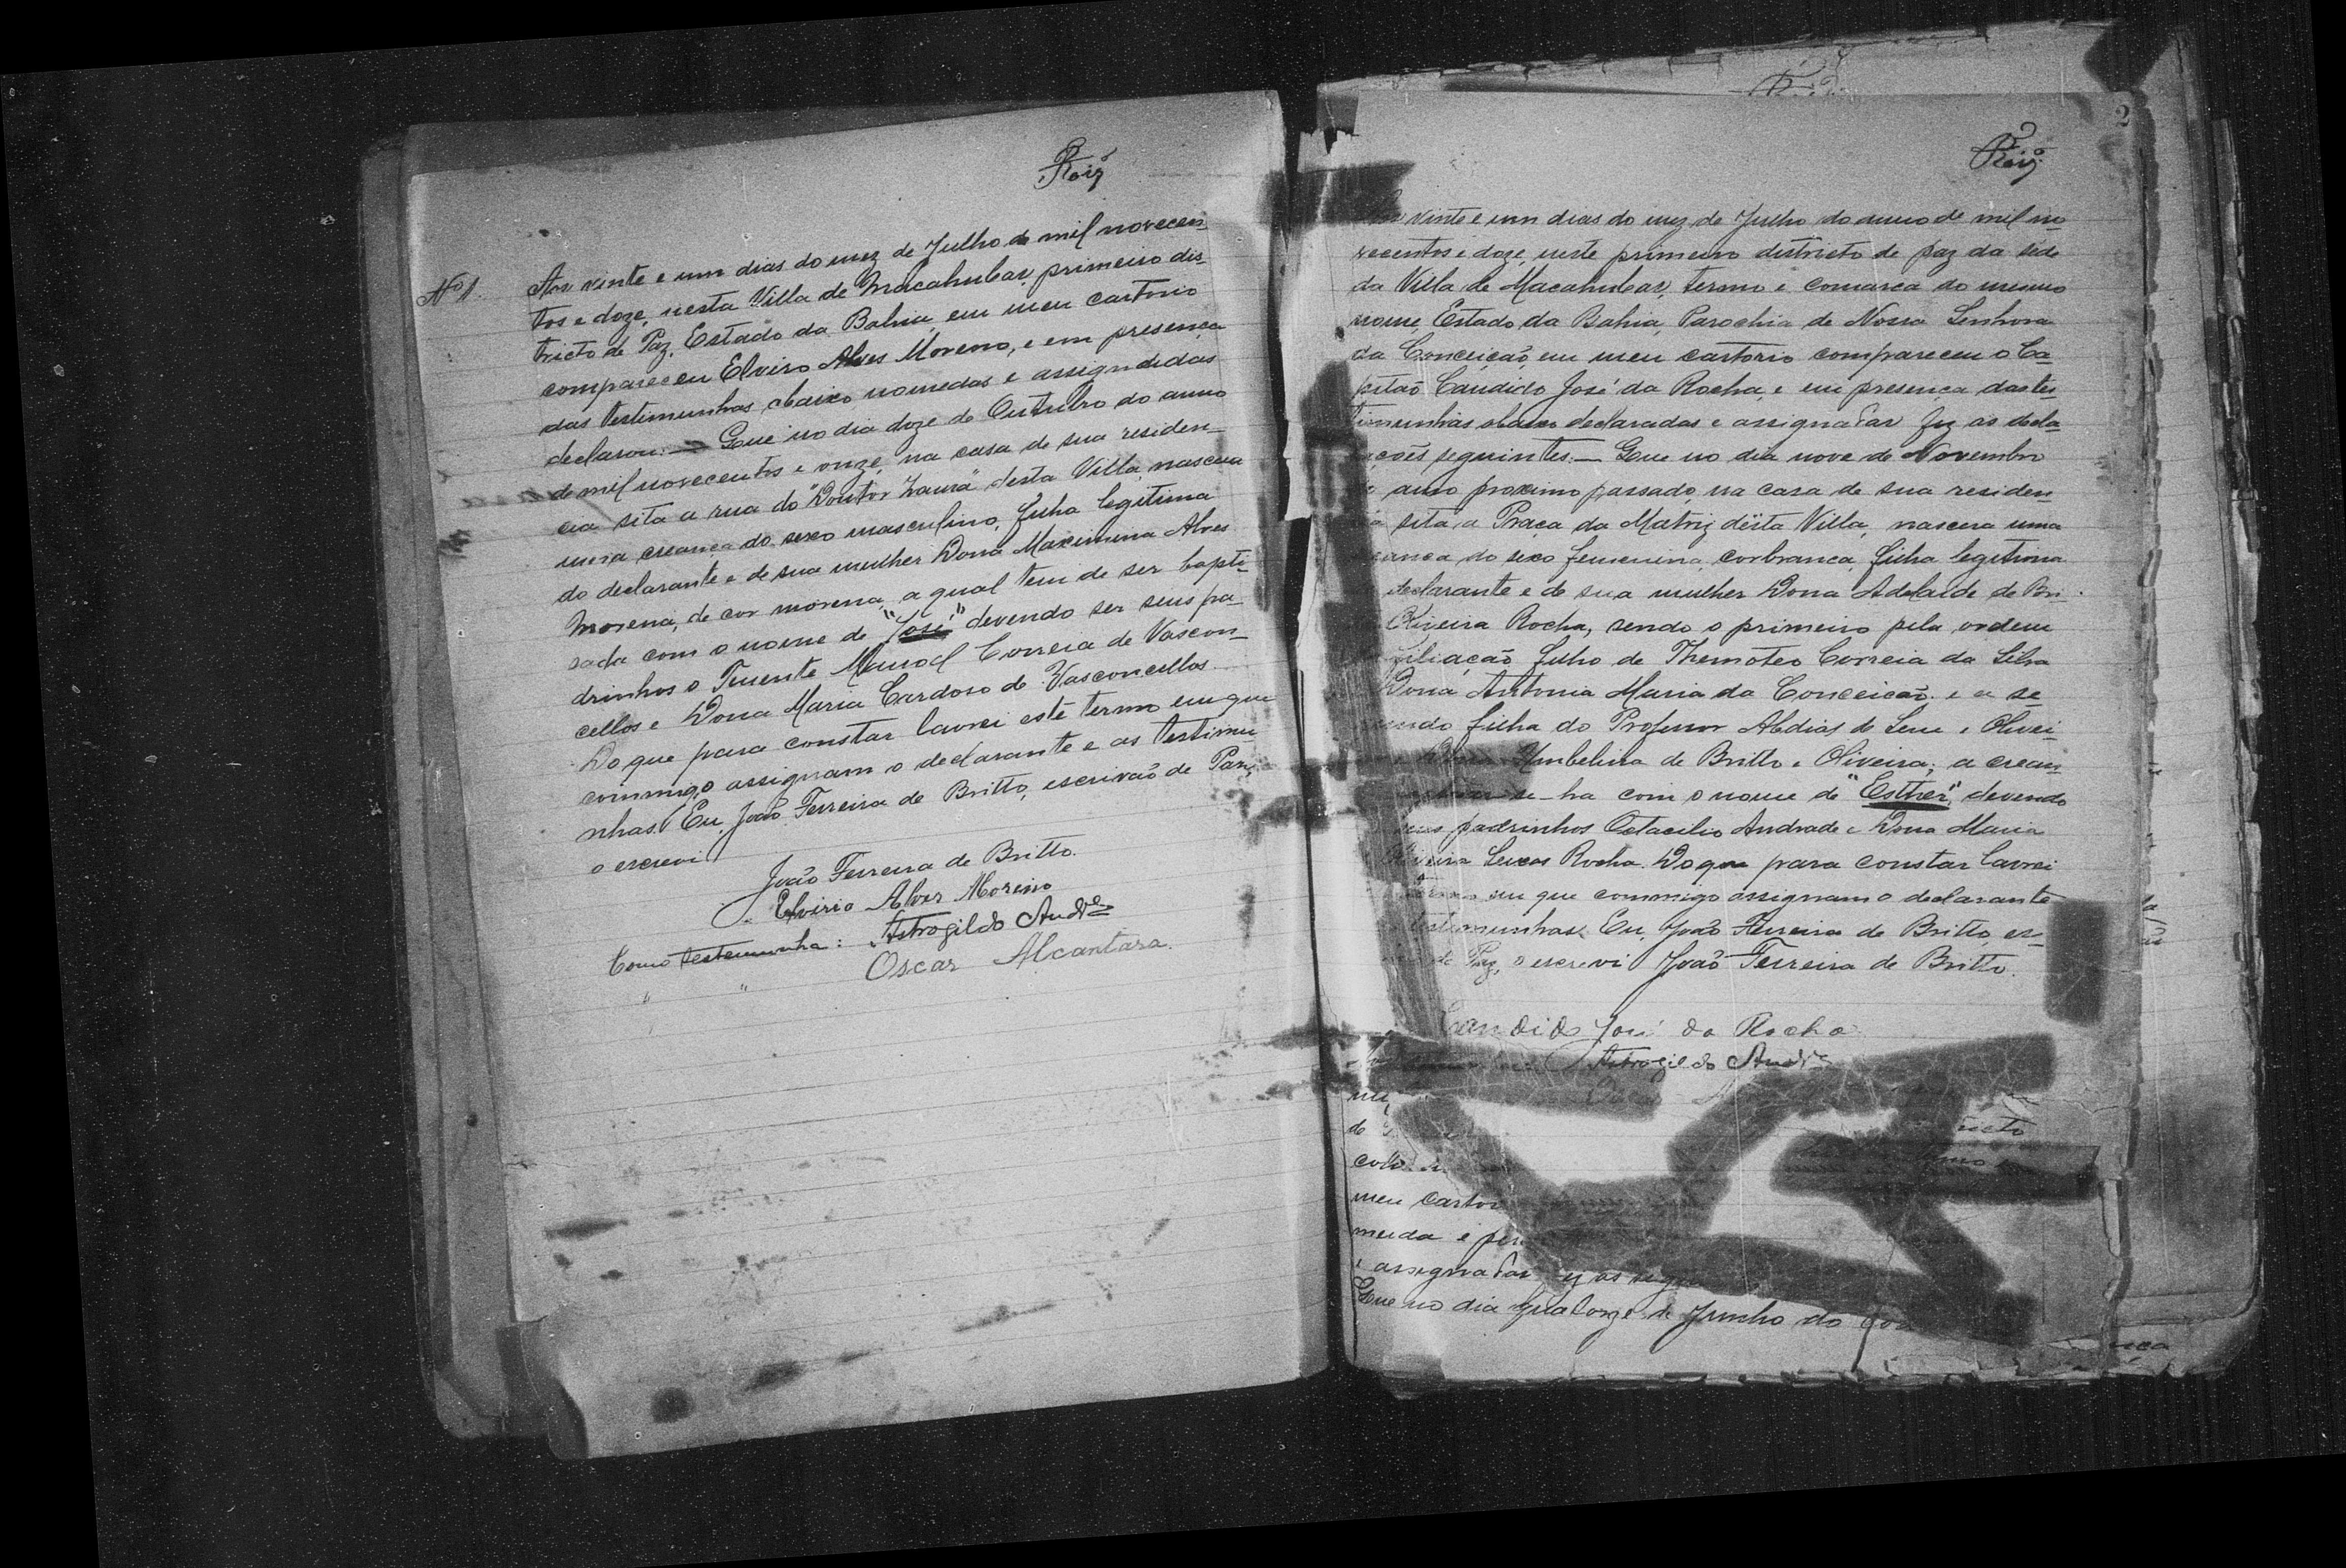 Roiz
Nº 1.
Aos vinte e um dias do mez de Julho de mil novecen-
tos e doze, nesta Villa de Macahubas, primeiro dis-
tricto de Paz, Estado da Bahia, em meu cartorio
compareceu Elviro Alves Moreno, e em presença
das testimunhas abaixo nomedas e assignadas
declarou: — Que no dia doze de Outubro do anno
de mil novecentos e onze, na casa de sua residen-
cia sita a rua do "Doutor" desta Villa, nascera
uma creança do sexo masculino, filha legitima
do declarante e de sua mulher Dona Maximina Alves
Morena, de cor morena, a qual tem de ser bapti-
sada com o nome de "José" devendo ser seus pa-
drinhos o Tenente Manoel Correia de Vascon-
cellos e Dona Maria Cardoso de Vasconcellos.
Do que para constar lavrei este termo em que
commigo assignam o declarante e as testimu-
nhas. Eu, João Ferreira de Britto, escrivão de Paz,
o escrevi
João Ferreira de Britto.
Elvirio Alves Moreino
Como testemunha: Astrogildo Andre
" " Oscar Alcantara.
2
Roiz
vinte e um dias do mez de Julho do anno de mil no-
vecentos e doze, neste primeiro districto de paz da sede
da Villa de Macahubas, termo e comarca do mesmo
nome, Estado da Bahia, Parochia de Nossa Senhora
da Conceição, em meu cartorio compareceu o Ca-
pitão Candido José da Rocha, e em presença das tes-
timunhas abaixo declaradas e assignadas fez as decla-
ações seguintes: — Que no dia nove de Novembro
anno proximo passado, na casa de sua residen-
sita, a Praça da Matriz désta Villa, nascera uma
eança do sexo femenino, cor branca, filha legitima
declarante e de sua mulher Dona Adelaide de Bri-
Oliveira Rocha, sendo o primeiro pela ordem
filiação filho de Themoteo Correia da Silva
Dona Antonia Maria da Conceição e a se-
gundo filha do Professor Abdias de Leu e Olivei-
Umbelina de Britto e Oliveira; a crean-
se-ha com o nome de "Esther", devendo
seus padrinhos Octacilio Andrade e Dona Maria
Oliveira Rocha. Do que para constar lavrei
termo em que commigo assignam o declarante
testimunhas. Eu, João Ferreira de Britto, es-
de Paz, o escrevi João Ferreira de Britto.
Candido José da Rocha
Astrogildo Andre
de
meu cartor
meida e
e assignadas as
Que no dia quatorze de Junho do